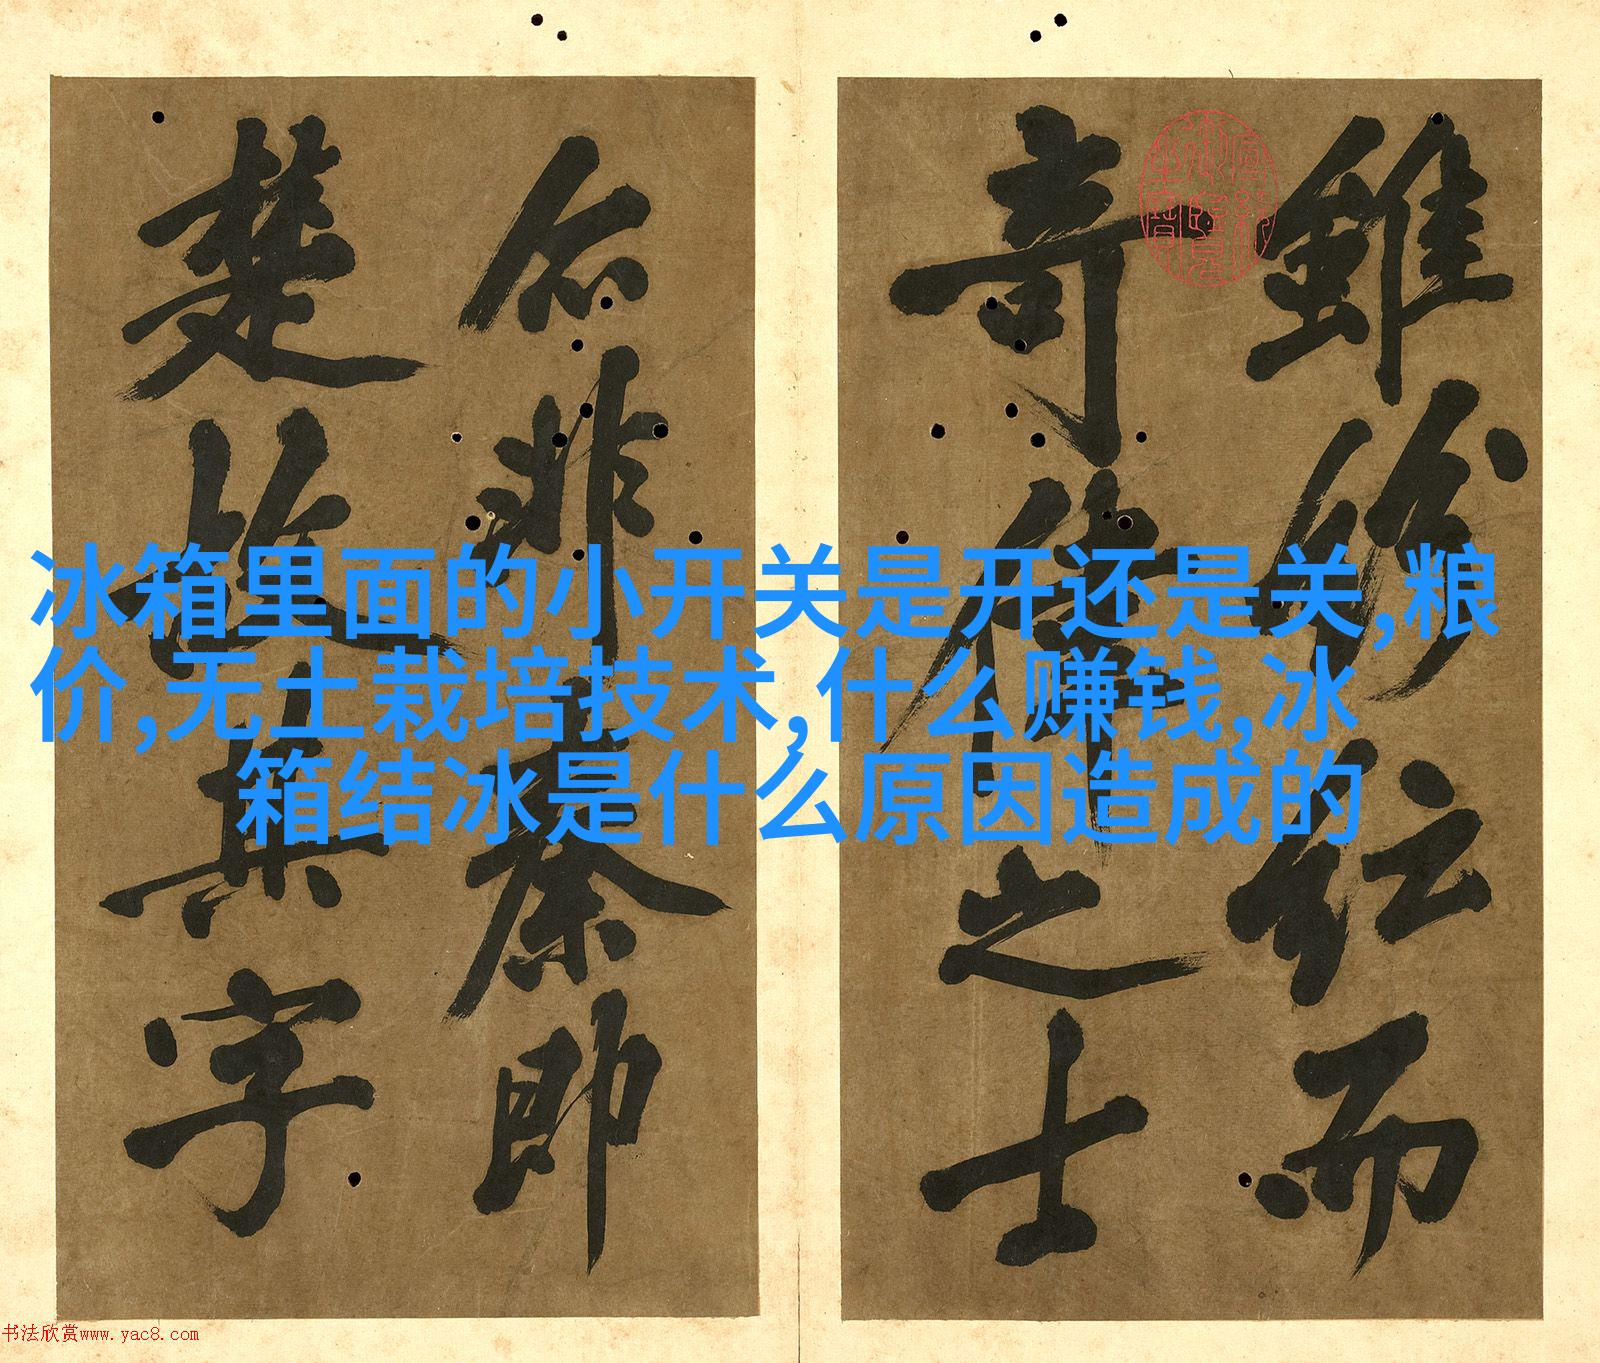 雖紛紜而
奇偉之士
非秦即
楚故其字
冰箱里面的小开关是开还是关,粮
价,无土栽培技术,什么赚钱,冰
箱结冰是什么原因造成的
书法欣赏www.yac8.com